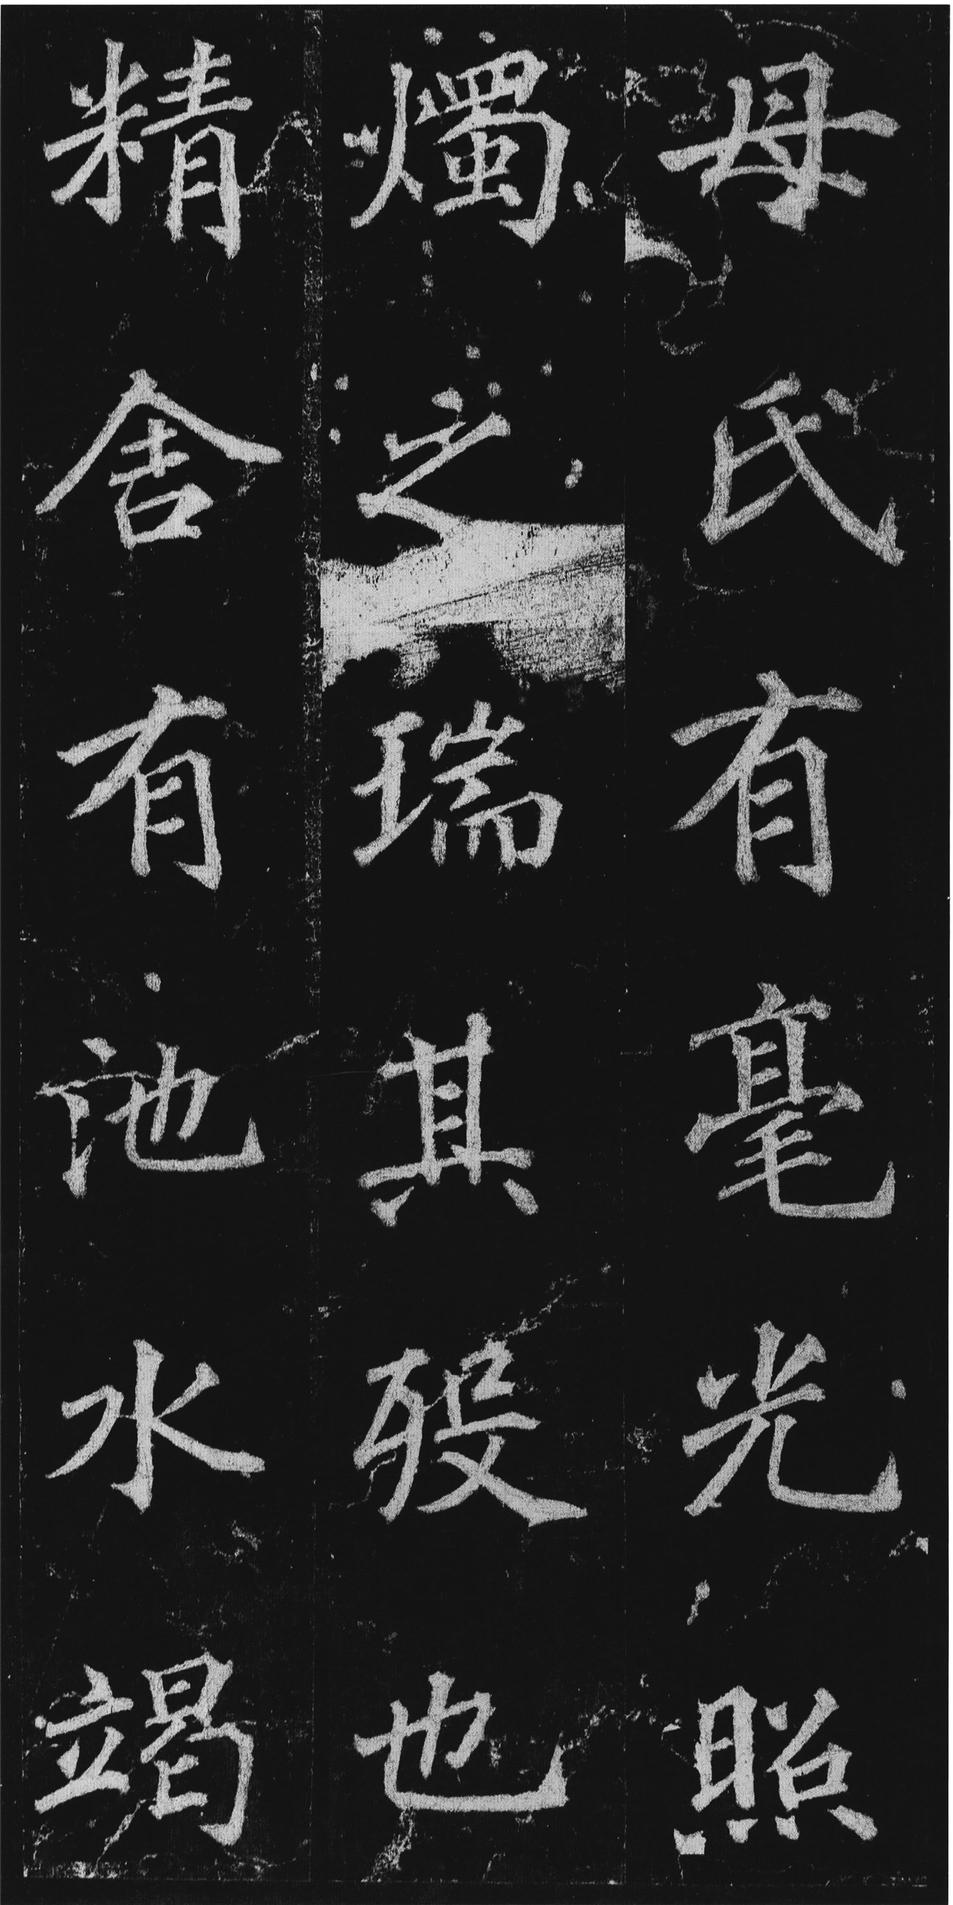 母氏有毫光照
燭之瑞其歿也
精舍有池水竭